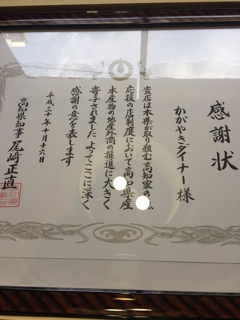 感謝状
かがやきダイナー様
貴店は本県が取り組む高知家の
応援の店制度において高知県産
水産物の地産外商の推進に大きく
寄与されましたよってここに深く
感謝の意を表します
平成三十年十月十六日
高知県知事 尾﨑正直